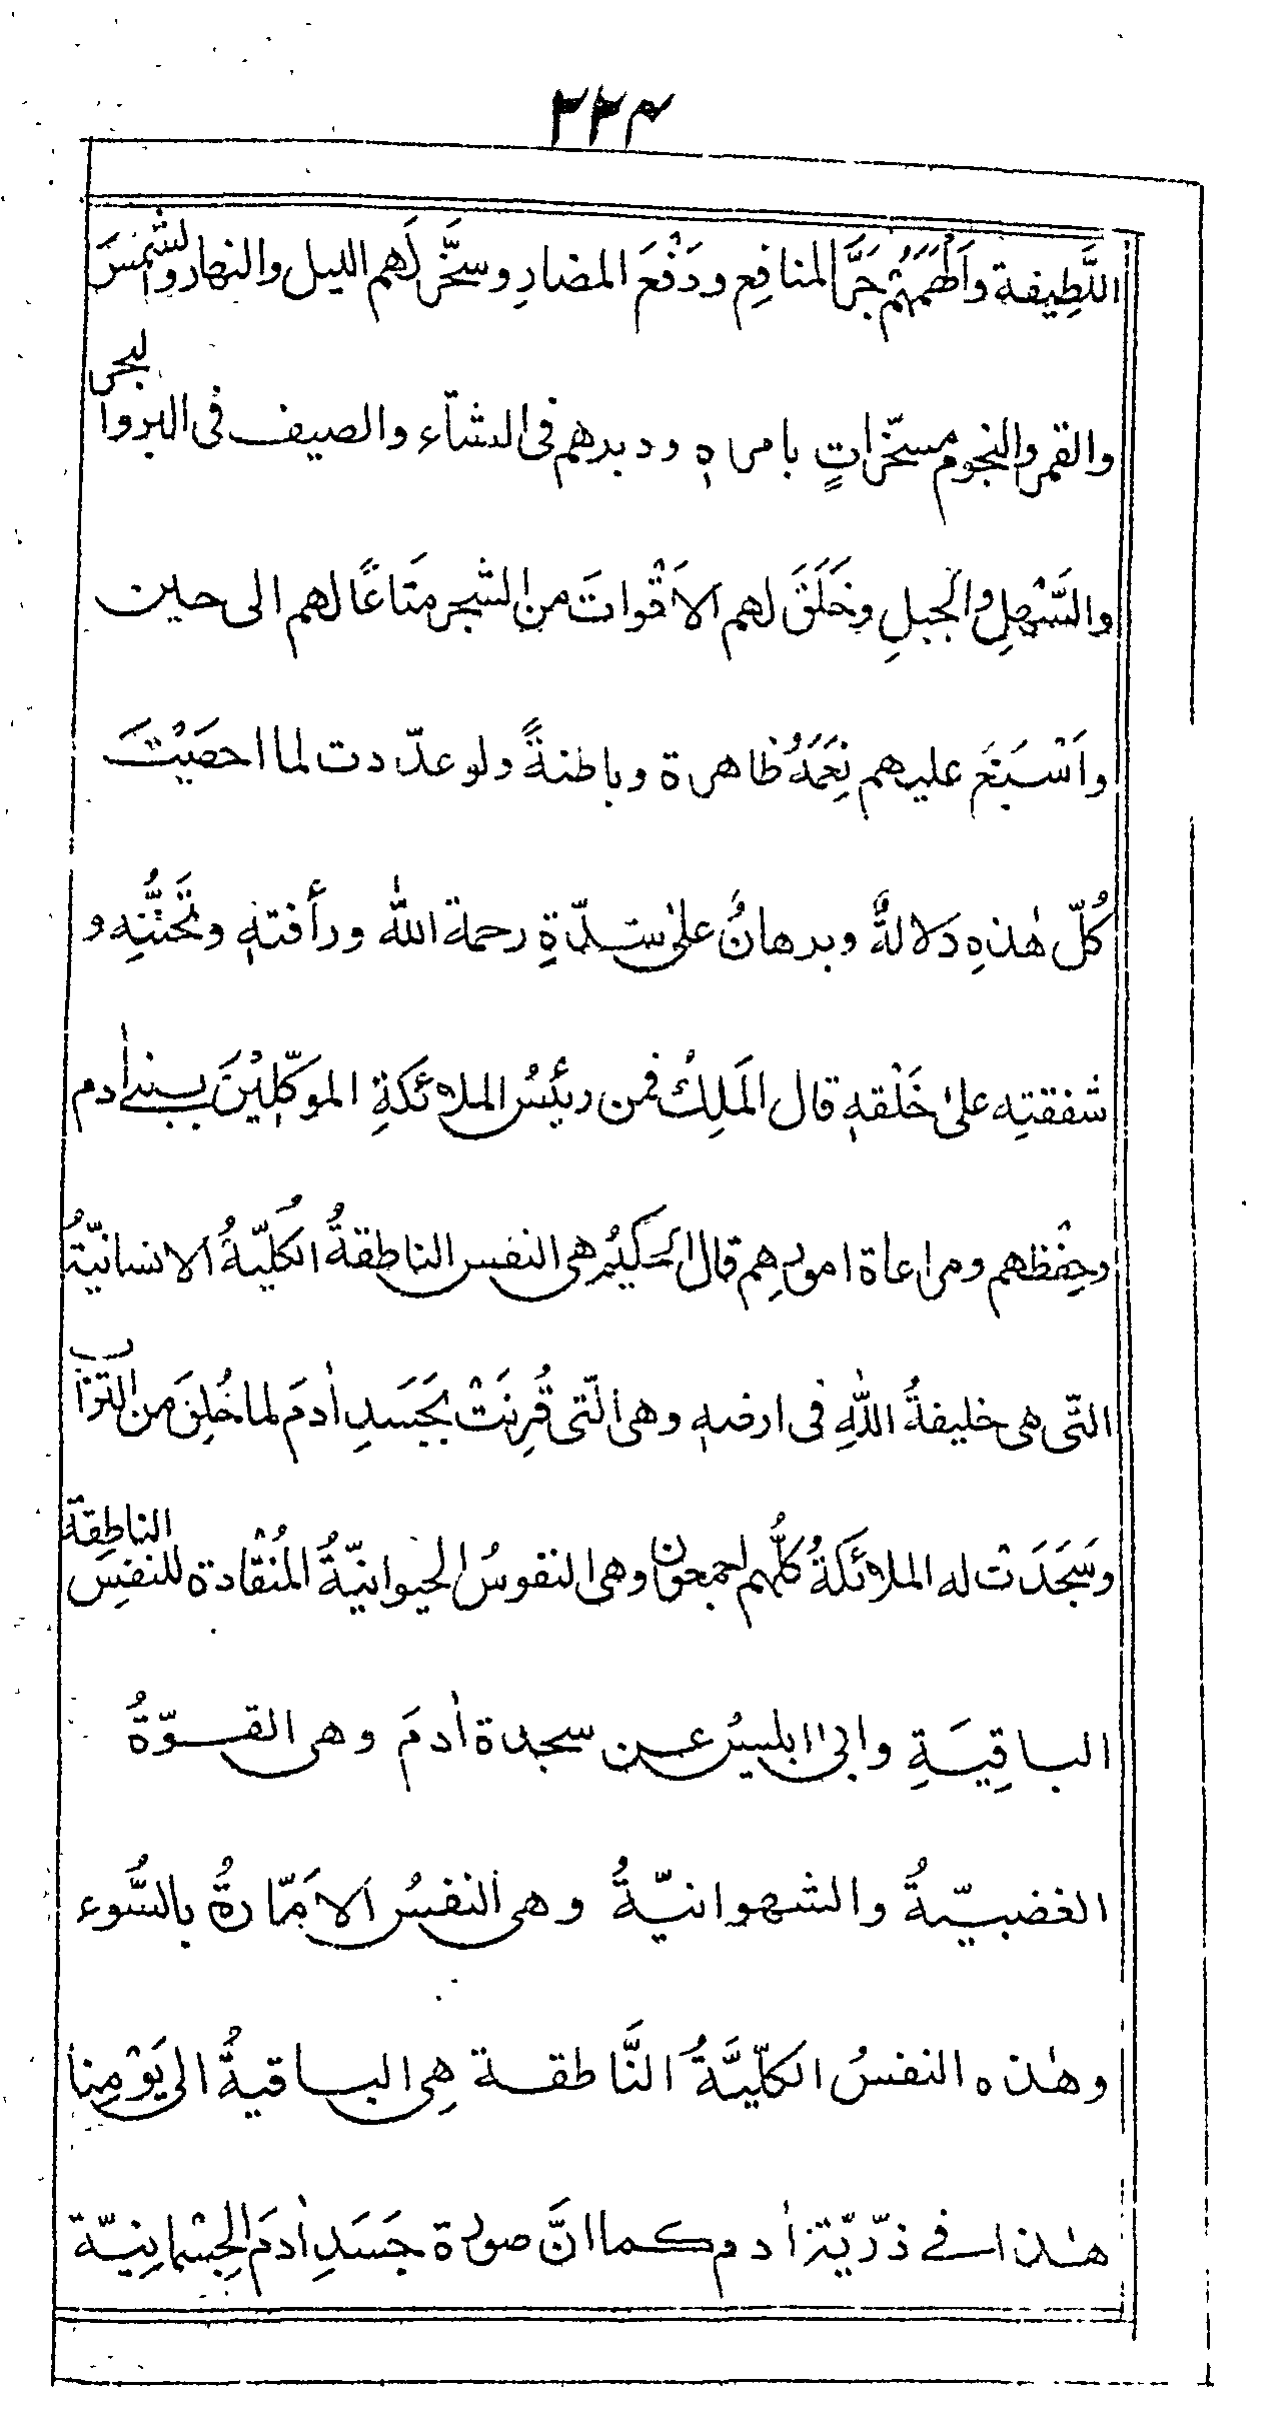 ۲۲۴
اللَّطِيفة واَلْهَمَهُم جَرَّ المنافِعِ ودَفْعَ المضارِ وسخَّر لَهم الليل والنهار والشمسَ
والقمر والنجوم مسخّراتٍ بامرهٖ ودبرهم فى الشتآء والصيف فى البر والبحر
والسَّهْلِ والجبلِ وخَلَقَ لهم الاَقْواتَ من الشجر مَتاعًا لهم الى حين
واَسْبَغَ عليهم نِعَمَهُ ظاهرة وباطنةً ولو عدّدت لما احصَيْتَ
كُلّ هٰذهِ دَلالةٌ وبرهانٌ علىٰ شدّةِ رحمة الله ورأفتهٖ وتَحَنُّنِهِ و
شفقتِه علىٰ خَلْقهٖ قال المَلِكُ فمن رئيسُ الملائكَةِ الموكّلِيْنَ ببنى اٰدم
وحِفْظهم ومراعاة امورِهم قال الحكيمُ هى النفس الناطقةُ الكُلّيّةُ الانسانيّةُ
التّى هى خليفةُ اللّٰهِ فى ارضهٖ وهى الّتى قُرِنَتْ بجَسَدِ اٰدمَ لما خُلِقَ من التراب
وسَجَدَتْ له الملائكَةُ كلُّهم اجمعون وهى النفوسُ الحيوانيّةُ المُنْقادة للنفسِ الناطِقة
الباقِيَةِ وابى ابليسُ عن سجدة اٰدمَ وهى القوّةُ
الغضبيّةُ والشهوانيّةُ وهى النفسُ الاَمّارةُ بالسُّوء
وهٰذه النفسُ الكلّيَّةُ النَّاطقة هِى الباقيةُ الى يَوْمِنا
هٰذا فى ذرّيّة اٰدم كما انَّ صورة جَسَدِ اٰدمَ الجِسْمانِيّة